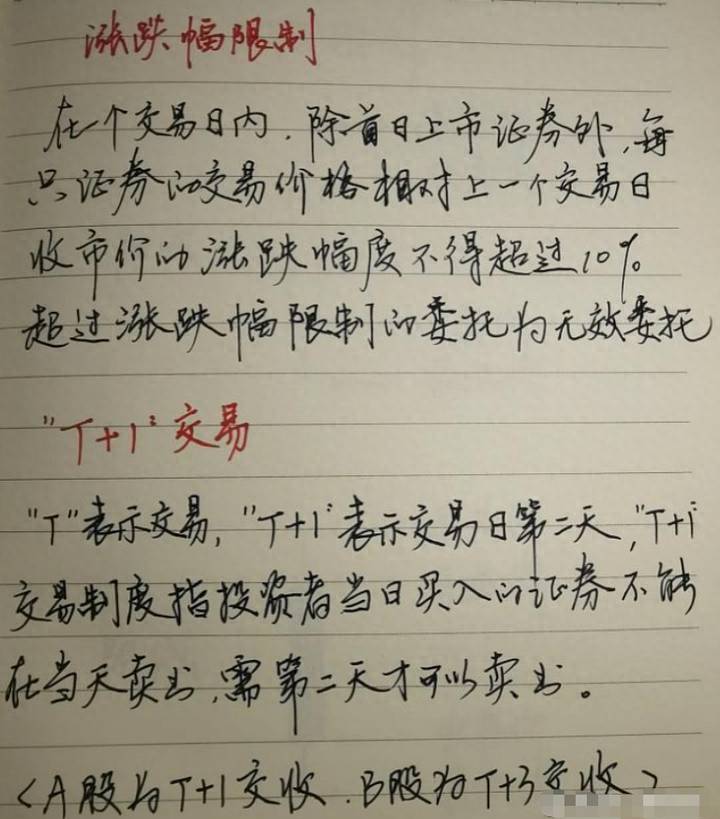 涨跌幅限制
在一个交易日内，除首日上市证券外，每
只证券的交易价格相对上一个交易日
收市价的涨跌幅度不得超过10%
超过涨跌幅限制的委托为无效委托
"T+1"交易
"T"表示交易，"T+1"表示交易日第二天，"T+1"
交易制度指投资者当日买入的证券不能
在当天卖出，需第二天才可以卖出。
<A股为T+1交收．B股为T+3交收>